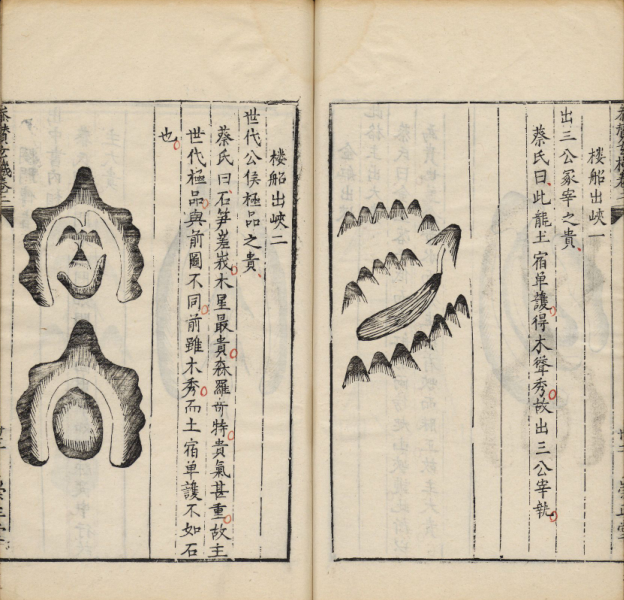 樓船出峽一
出三公冢宰之貴
蔡氏曰此龍土宿單護得木聳秀故出三公宰執
樓船出峽二
世代公侯極品之貴
蔡氏曰石笋差峩木星最貴森羅奇特貴氣甚重故主
世代極品與前圖不同前雖木秀而土宿單護不如石
也